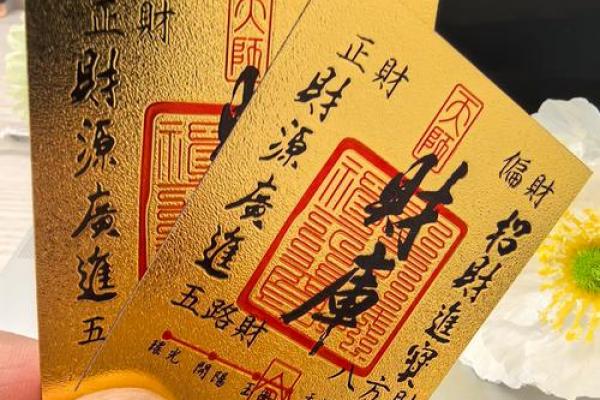 正財
天師
財源廣進
五
正財
天師
偏財
財源廣進
財庫
招財進寶
五路財
八方財
開陽